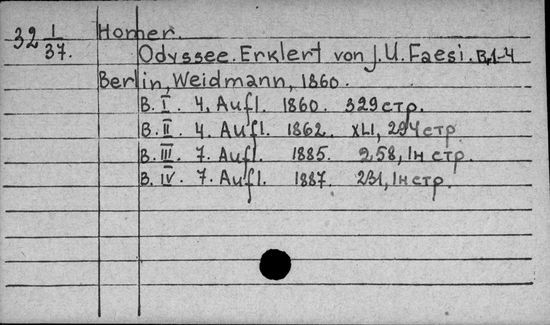 32 1/37. Homer.
Odyssee. Erklert von J. U. Faesi. B. 1-4
Berlin, Weidmann, 1860.
B. I. 4. Aufl. 1860. 329 стр.
B. II. 4. Aufl. 1862. XLI, 294 стр
B. III. 7. Aufl. 1885. 258, 1н стр.
B. IV. 7. Aufl. 1887. 231, 1н стр.